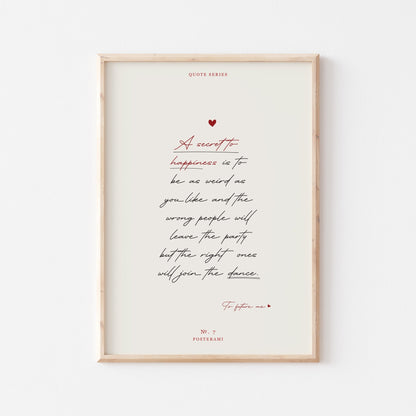 QUOTE SERIES
A secret to
happiness is to
be as weird as
you like and the
wrong people will
leave the party
but the right ones
will join the dance.
To future me
№. 7
POSTERAMI